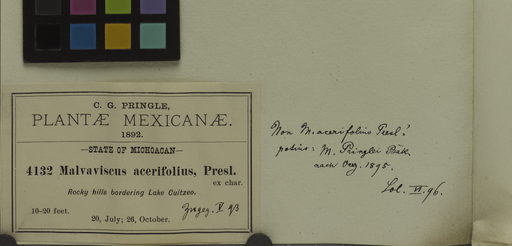 C. G. PRINGLE,
PLANTÆ MEXICANÆ.
1892.
STATE OF MICHOACAN
4132 Malvaviscus acerifolius, Presl.
ex char.
Rocky hills bordering Lake Cuitzeo.
10–20 feet.
20, July; 26, October.
Non M. acerifolius Presl!
potius: M. Pringlei Bak.
1895.
VI. 96.